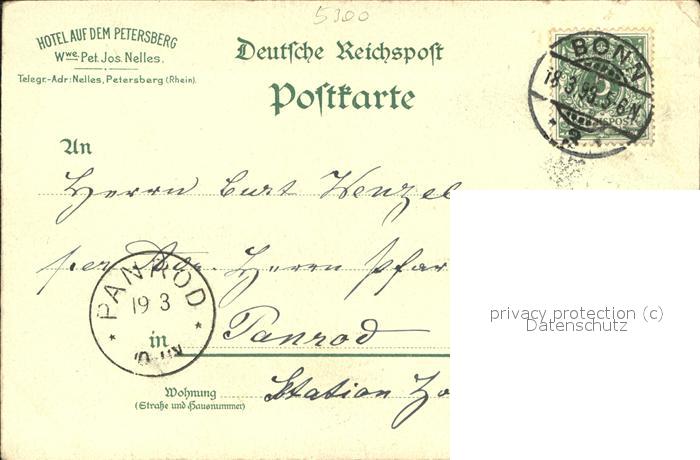 5300
HOTEL AUF DEM PETERSBERG
Wwe. Pet. Jos. Nelles.
Telegr.-Adr: Nelles, Petersberg (Rhein).
Deutsche Reichspost
Postkarte
BONN
18.3.98.5-6N.
An
Herrn Curt Wenzel
per Adr. Herrn Pfar
PANROD
19 3
in Panrod
Wohnung
(Straße und Hausnummer)
Station Zo
privacy protection (c)
Datenschutz